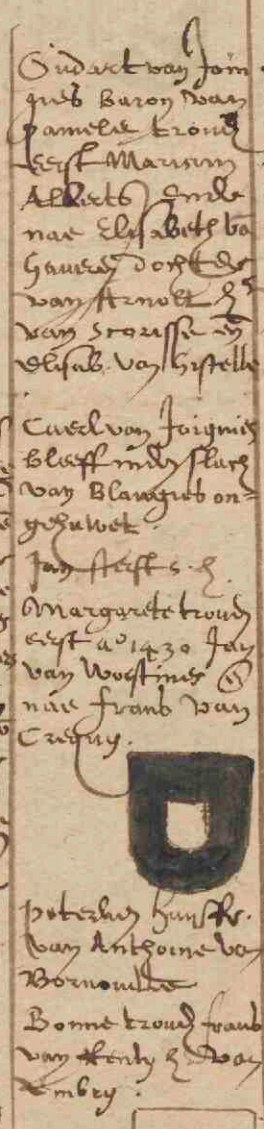 Oudart van Join
gnies Baron van
pamele troud
eerst Mariam
Alberts Ende
nae Elisabeth va
haveres dochter
van Arnolt h.r
van scorisse en
Elisab. van histelle
Caerl van Joignies
bleeff inden slach
van Blangies on=
gehuwet.
Jan sterft s. h.
Margarete troud
eerst a.o 1430 Jan
van Woestines en
nae frans van
Crequy.
peterken huusfr.
van Anthoine van
Bornonville
Bonne troud frans
van Renty h. van
Embry.